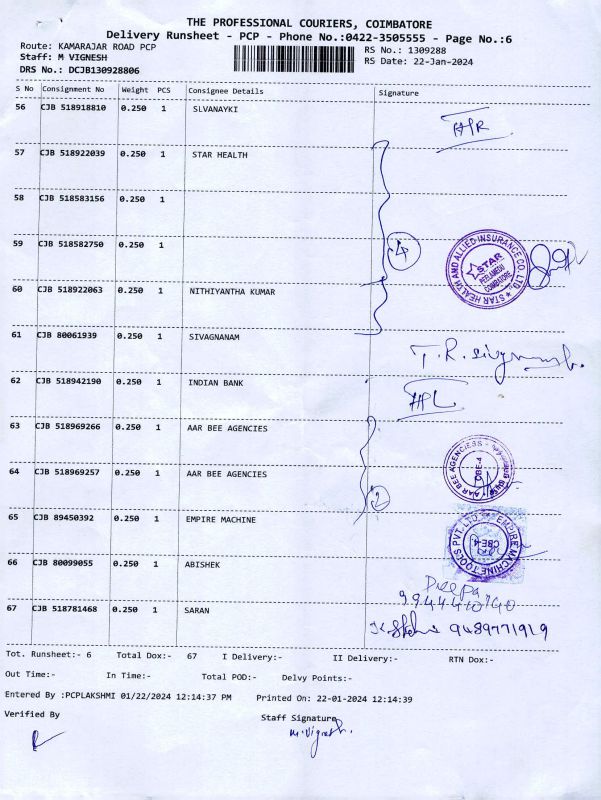 THE PROFESSIONAL COURIERS, COIMBATORE
Delivery Runsheet - PCP - Phone No.:0422-3505555 - Page No.:6
Route: KAMARAJAR ROAD PCP
RS No.: 1309288
Staff: M VIGNESH
RS Date: 22-Jan-2024
DRS No.: DCJB130928806
S No Consignment No Weight PCS Consignee Details Signature
56 CJB 518918810 0.250 1 SLVANAYKI
57 CJB 518922039 0.250 1 STAR HEALTH
58 CJB 518583156 0.250 1
59 CJB 518582750 0.250 1 4
STAR HEALTH AND ALLIED INSURANCE CO. LTD.
STAR
PEELAMEDU
COIMBATORE
60 CJB 518922063 0.250 1 NITHIYANTHA KUMAR
61 CJB 80061939 0.250 1 SIVAGNANAM
62 CJB 518942190 0.250 1 INDIAN BANK
63 CJB 518969266 0.250 1 AAR BEE AGENCIES
AAR BEE AGENCIESS
CBE-4
64 CJB 518969257 0.250 1 AAR BEE AGENCIES 2
65 CJB 89450392 0.250 1 EMPIRE MACHINE
EMPIRE MACHINE TOOLS PVT. LTD.
CBE-4
66 CJB 80099055 0.250 1 ABISHEK
Deepa
67 CJB 518781468 0.250 1 SARAN 9489771919
Tot. Runsheet:- 6 Total Dox:- 67 I Delivery:- II Delivery:- RTN Dox:-
Out Time:- In Time:- Total POD:- Delvy Points:-
Entered By :PCPLAKSHMI 01/22/2024 12:14:37 PM Printed On: 22-01-2024 12:14:39
Verified By Staff Signature
M.Vignesh.